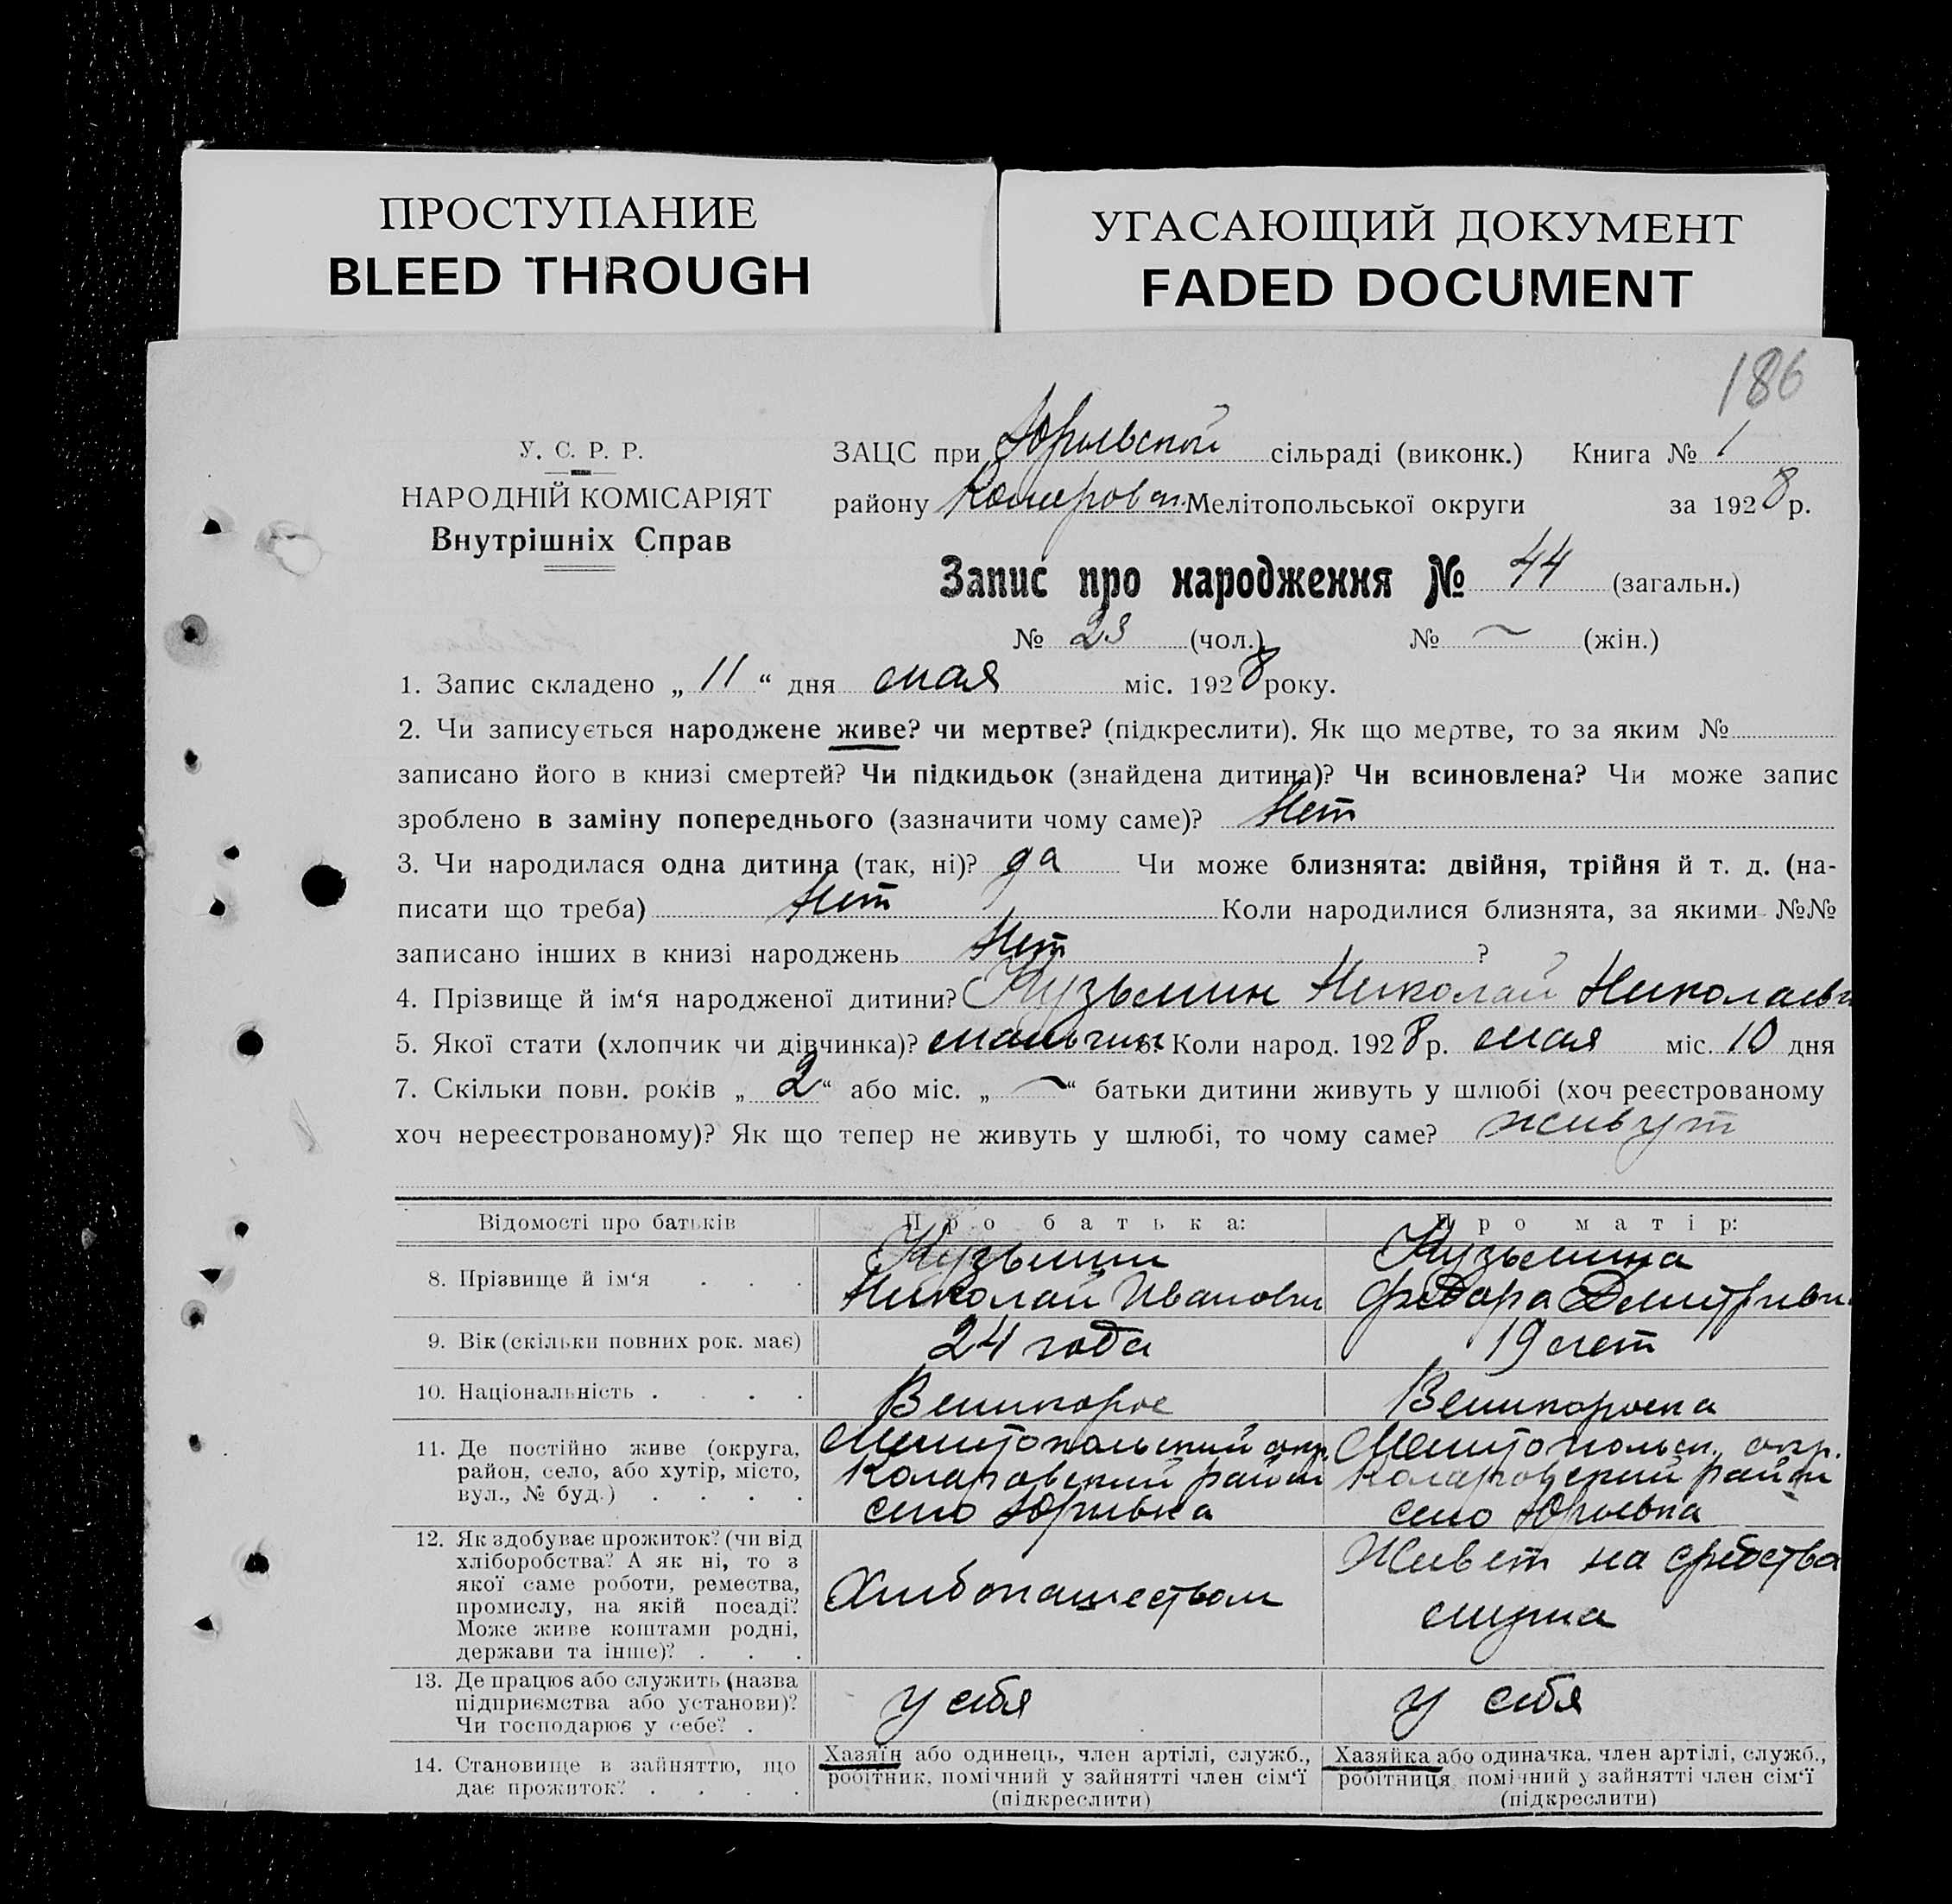 ПРОСТУПАНИЕ
BLEED THROUGH
УГАСАЮЩИЙ ДОКУМЕНТ
FADED DOCUMENT
186
У. С. Р. Р.
НАРОДНІЙ КОМІСАРІЯТ
Внутрішніх Справ
ЗАЦС при Юрьевской сільраді (виконк.) Книга № 1
району Мелітопольської округи за 1928 р.
Запис про народження № 44 (загальн.)
№ 23 (чол.) № — (жін.)
1. Запис складено „ 11 “ дня мая міс. 1928 року.
2. Чи записується народжене живе? чи мертве? (підкреслити). Як що мертве, то за яким №
записано його в книзі смертей? Чи підкидьок (знайдена дитина)? Чи всиновлена? Чи може запис
зроблено в заміну попереднього (зазначити чому саме)? Нет
3. Чи народилася одна дитина (так, ні)? да Чи може близнята: двійня, трійня й т. д. (на-
писати що треба) Нет Коли народилися близнята, за якими №№
записано інших в книзі народжень Нет ?
4. Прізвище й ім‘я народженої дитини? Кузьмин Николай Николаеви
5. Якої стати (хлопчик чи дівчинка)? мальчик 6. Коли народ. 1928 р. мая міс. 10 дня
7. Скільки повн. років „ 2 “ або міс. „ — “ батьки дитини живуть у шлюбі (хоч реєстрованому
хоч нереєстрованому)? Як що тепер не живуть у шлюбі, то чому саме? живут
Відомості про батьків Про батька: Про матір:
8. Прізвище й ім‘я . . . Кузьмин Николай Иванови Кузьмина Федора Дмитриевн
9. Вік (скільки повних рок. має) 24 года 19 лет
10. Національність . . . . Великорос Великороска
11. Де постійно живе (округа, район, село, або хутір, місто, вул., № буд.) . . . .
Мелитопольский окр. Коларовский район село Юрьевка
Мелитопольск. окр. Коларовский район село Юрьевка
12. Як здобуває прожиток? (чи від хліборобства? А як ні, то з якої саме роботи, ремества, промислу, на якій посаді? Може живе коштами родні, держави та інше)? . . .
Хлебопашеством
Живет на средства мужа
13. Де працює або служить (назва підприємства або установи)? Чи господарює у себе? .
у себя
у себя
14. Становище в зайняттю, що дає прожиток? . . . .
Хазяїн або одинець, член артілі, служб., робітник, помічний у зайнятті член сім‘ї (підкреслити)
Хазяйка або одиначка, член артілі, служб., робітниця, помічний у зайнятті член сім‘ї (підкреслити)